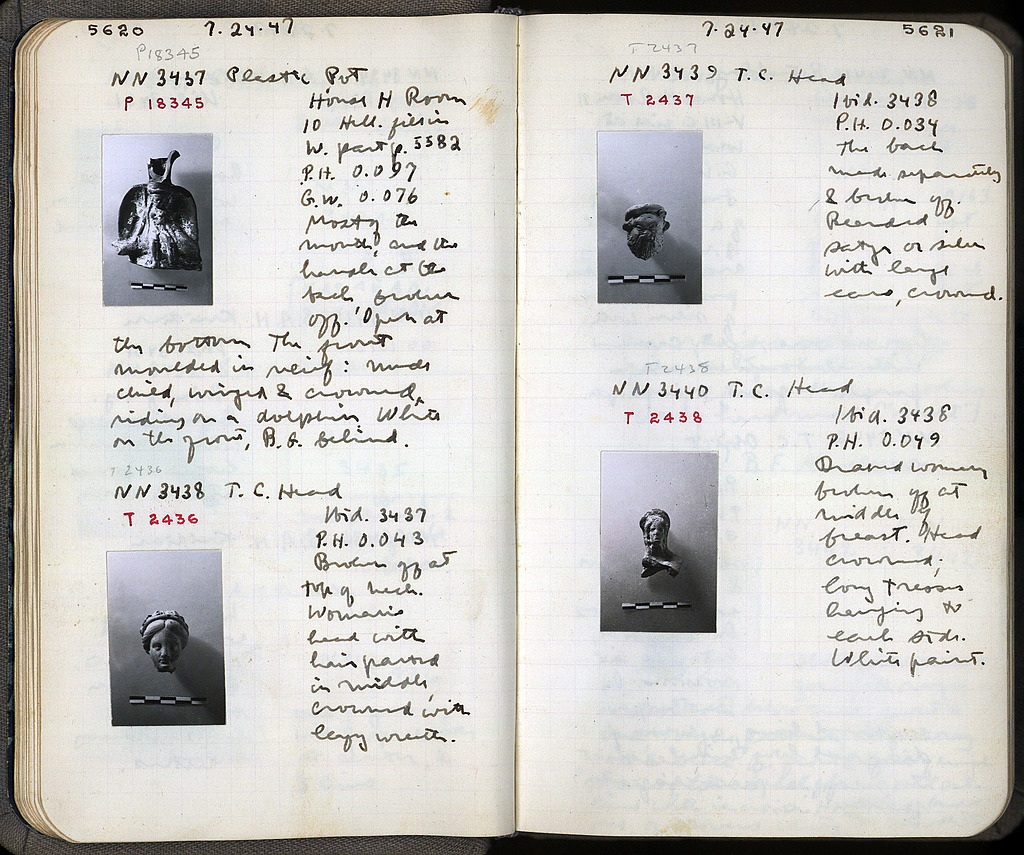 5620 7.24.47
P18345
NN 3437 Plastic Pot
P 18345
House H Room
10 Hell. fill in
W. part p. 5582
P.H. 0.097
G.W. 0.076
Most of the
mouth, and the
handle at the
back broken
off. Open at
the bottom The front
moulded in relief: nude
child, winged & crowned,
riding on a dolphin White
on the front, B.G. behind.
T 2436
NN 3438 T.C. Head
T 2436
Ibid. 3437
P.H. 0.043
Broken off at
top of neck.
Woman's
head with
hair parted
in middle,
crowned with
leafy wreath.
7.24.47 5621
T2437
NN 3439 T.C. Head
T 2437
Ibid. 3438
P.H. 0.034
The back
made separately
& broken off.
Bearded
satyr or silen
with large
ears, crowned.
T2438
NN 3440 T.C. Head
T 2438
Ibid. 3438
P.H. 0.049
Draped woman
broken off at
middle of
breast. Head
crowned;
long tresses
hanging to
each side.
White paint.